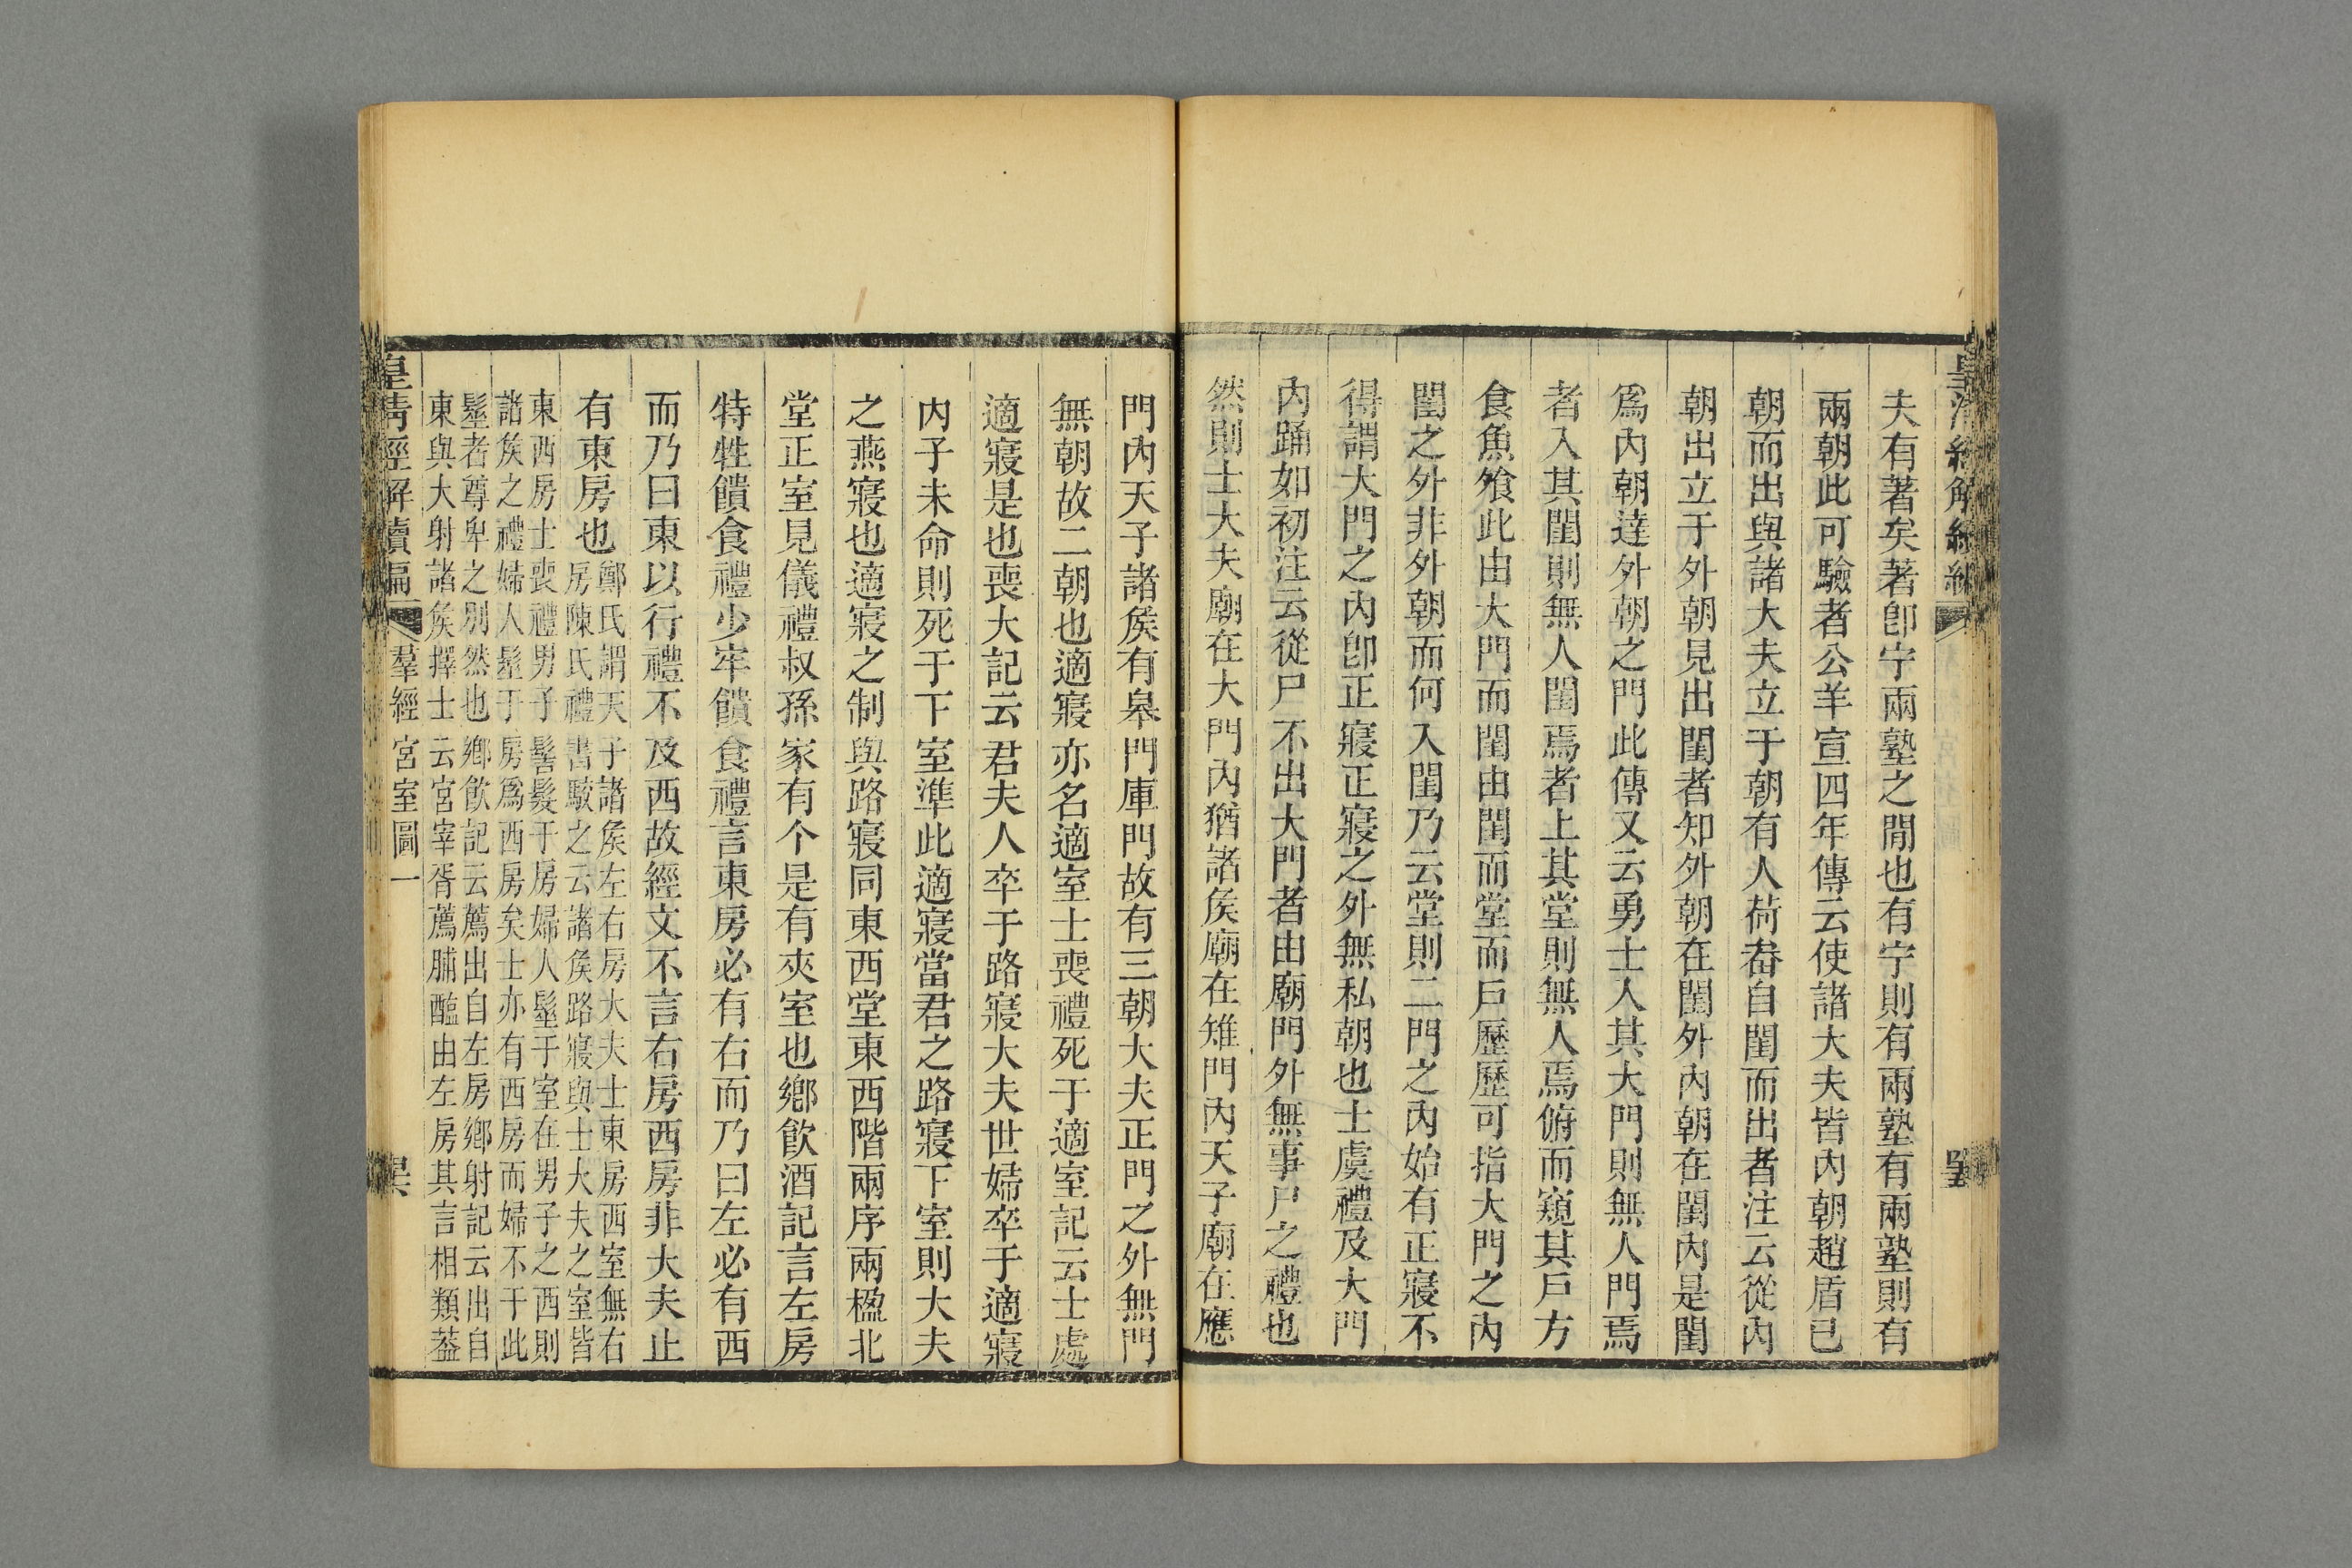 夫有著矣著卽宁兩塾之閒也有宁則有兩塾有兩塾則有
兩朝此可驗者公羊宣四年傳云使諸大夫皆內朝趙盾已
朝而出與諸大夫立于朝有人荷畚自閨而出者注云從內
朝出立于外朝見出閨者知外朝在閨外內朝在閨內是閨
爲內朝達外朝之門此傳又云勇士入其大門則無人門焉
者入其閨則無人閨焉者上其堂則無人焉俯而窺其戶方
食魚飧此由大門而閨由閨而堂而戶歷歷可指大門之內
閨之外非外朝而何入閨乃云堂則二門之內始有正寢不
得謂大門之內卽正寢正寢之外無私朝也士虞禮及大門
內踊如初注云從尸不出大門者由廟門外無事尸之禮也
然則士大夫廟在大門內猶諸矦廟在雉門內天子廟在應
門內天子諸矦有皋門庫門故有三朝大夫正門之外無門
無朝故二朝也適寢亦名適室士喪禮死于適室記云士處
適寢是也喪大記云君夫人卒于路寢大夫世婦卒于適寢
內子未命則死于下室準此適寢當君之路寢下室則大夫
之燕寢也適寢之制與路寢同東西堂東西階兩序兩楹北
堂正室見儀禮叔孫家有个是有夾室也鄉飮酒記言左房
特牲饋食禮少牢饋食禮言東房必有右而乃曰左必有西
而乃曰東以行禮不及西故經文不言右房西房非大夫止
有東房也
鄭氏謂天子諸矦左右房大夫士東房西室無右
房陳氏禮書駮之云諸矦路寢與士大夫之室皆
東西房士喪禮男子髺髮于房婦人髽于室在男子之西則
諸矦之禮婦人髽于房爲西房矣士亦有西房而婦不于此
髽者尊卑之別然也鄉飮記云薦出自左房鄉射記云出自
東與大射諸矦擇士云宮宰胥薦脯醢由左房其言相類葢
皇清經解續編
羣經宮室圖一